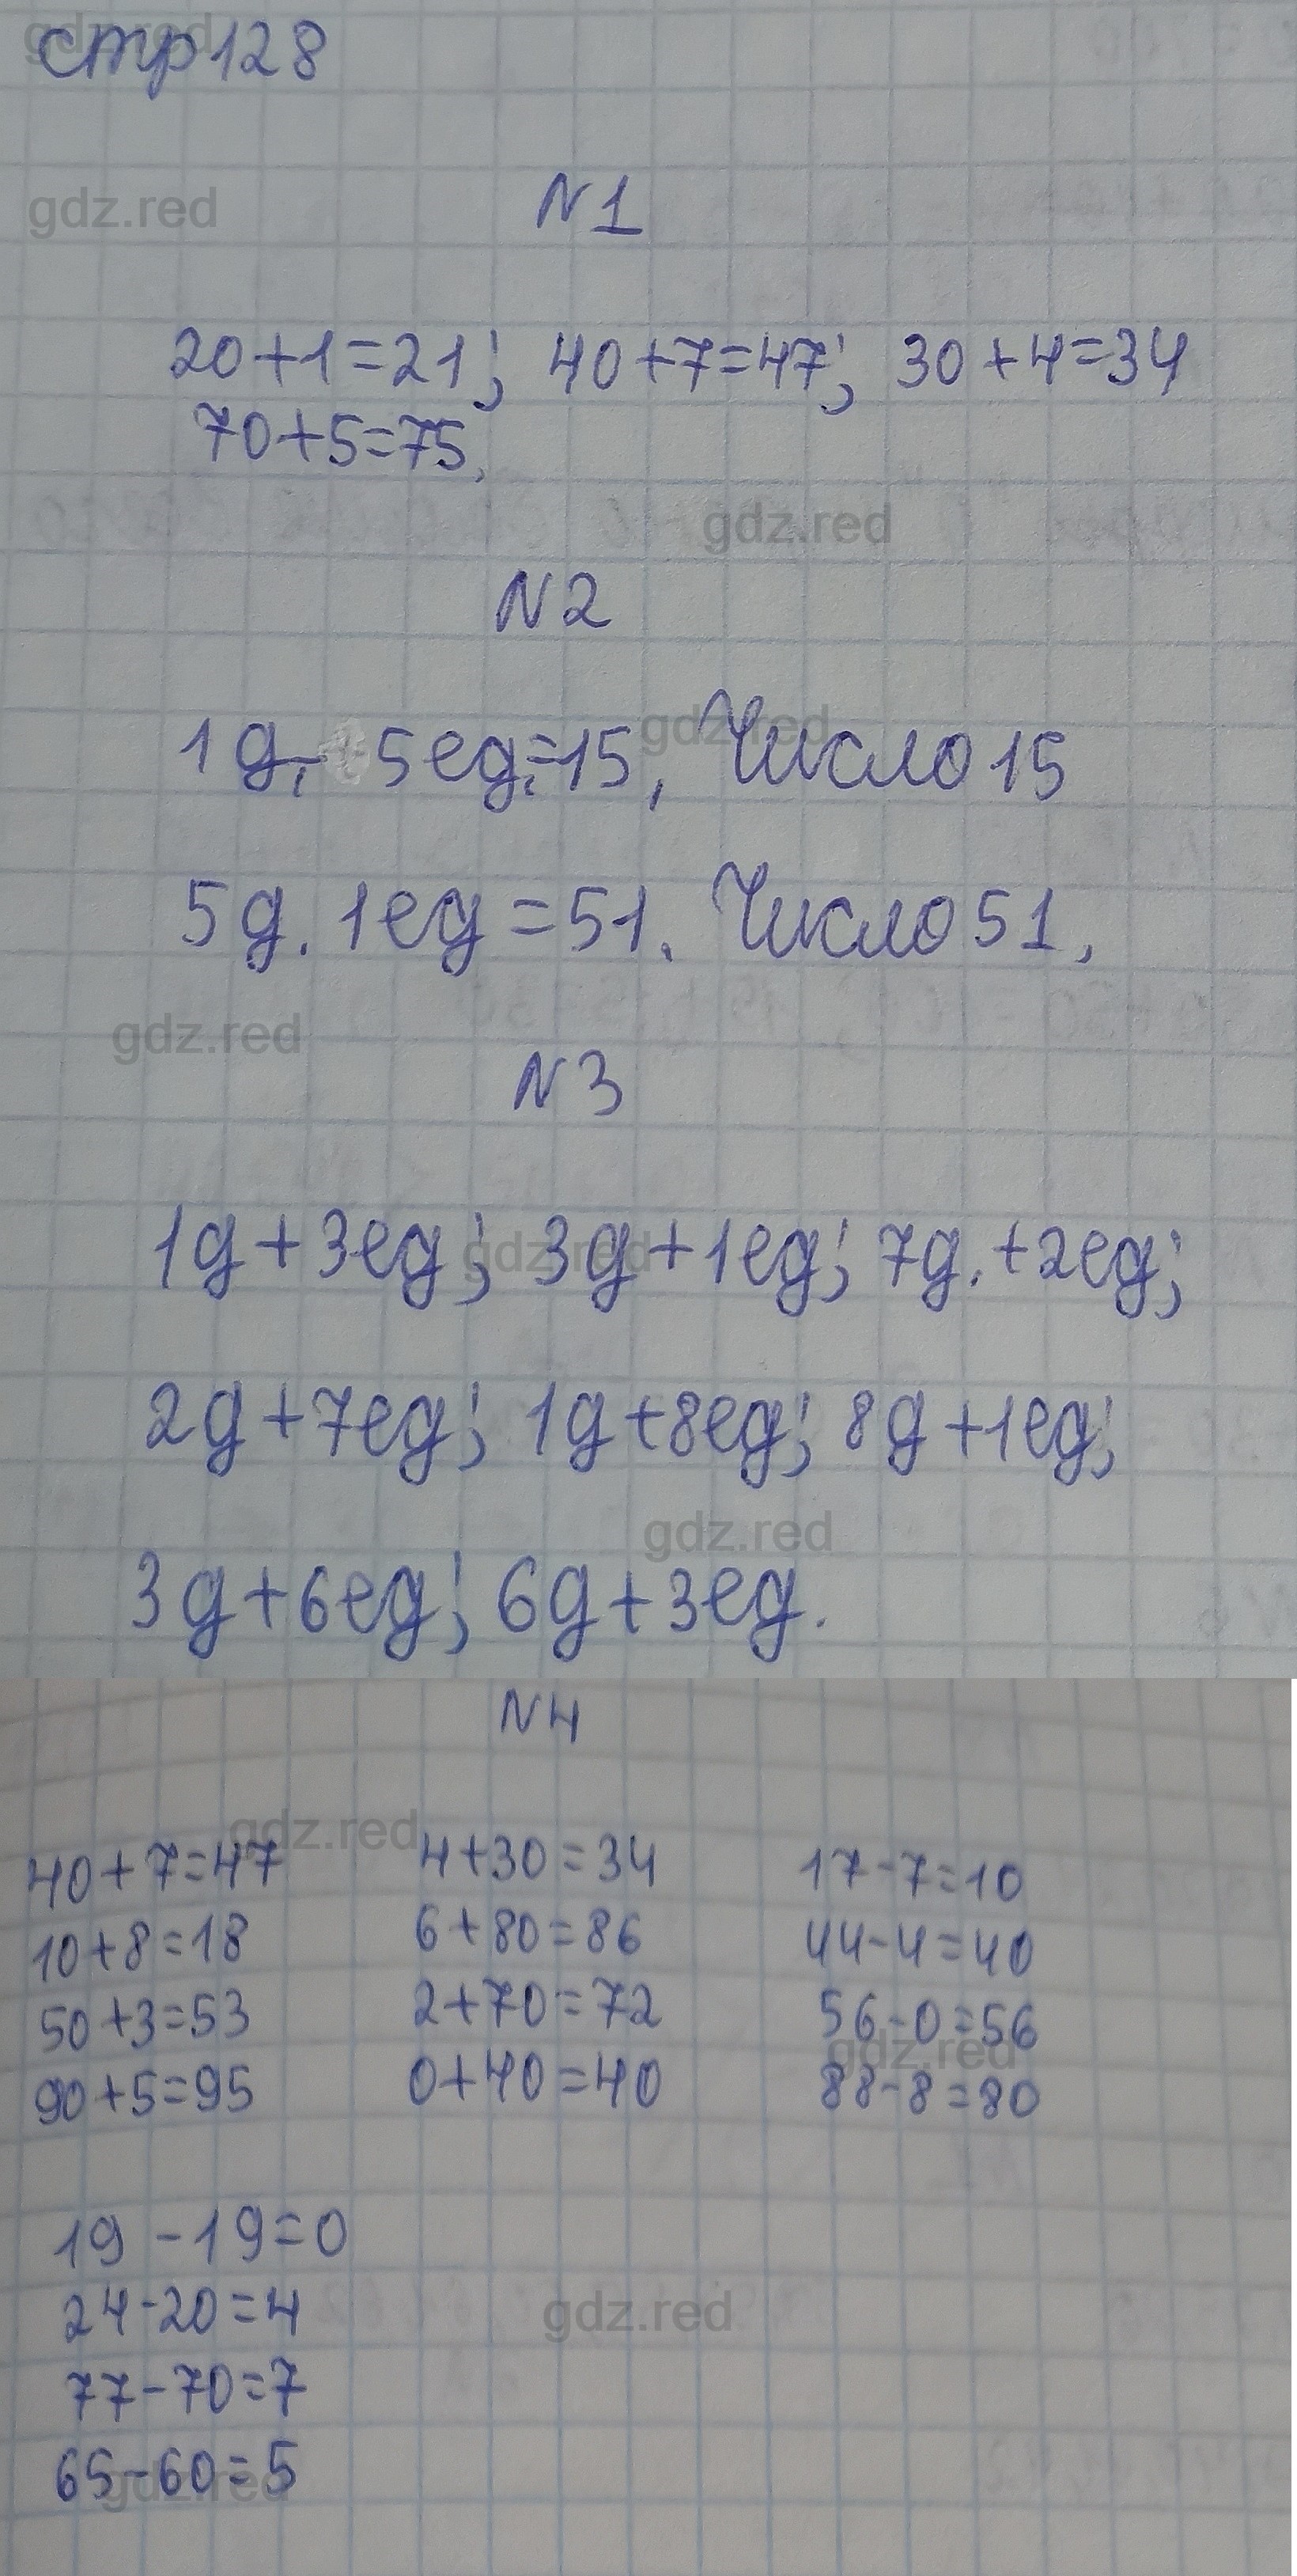 стр 128
gdz.red
gdz.red
N1
20+1=21; 40+7=47; 30+4=34
70+5=75.
gdz.red
N2
gdz.red
1 д. 5 ед.=15, Число 15
5 д. 1 ед = 51. Число 51.
gdz.red
N3
gdz.red
1д + 3ед; 3д + 1ед; 7д. + 2ед;
2д + 7ед; 1д + 8ед; 8д + 1ед;
gdz.red
3д + 6ед; 6д + 3ед.
N4
gdz.red
40+7=47 4+30=34 17-7=10
10+8=18 6+80=86 44-4=40
50+3=53 2+70=72 56-0=56
gdz.red
90+5=95 0+40=40 88-8=80
19-19=0
24-20=4
gdz.red
77-70=7
65-60=5
gdz.red